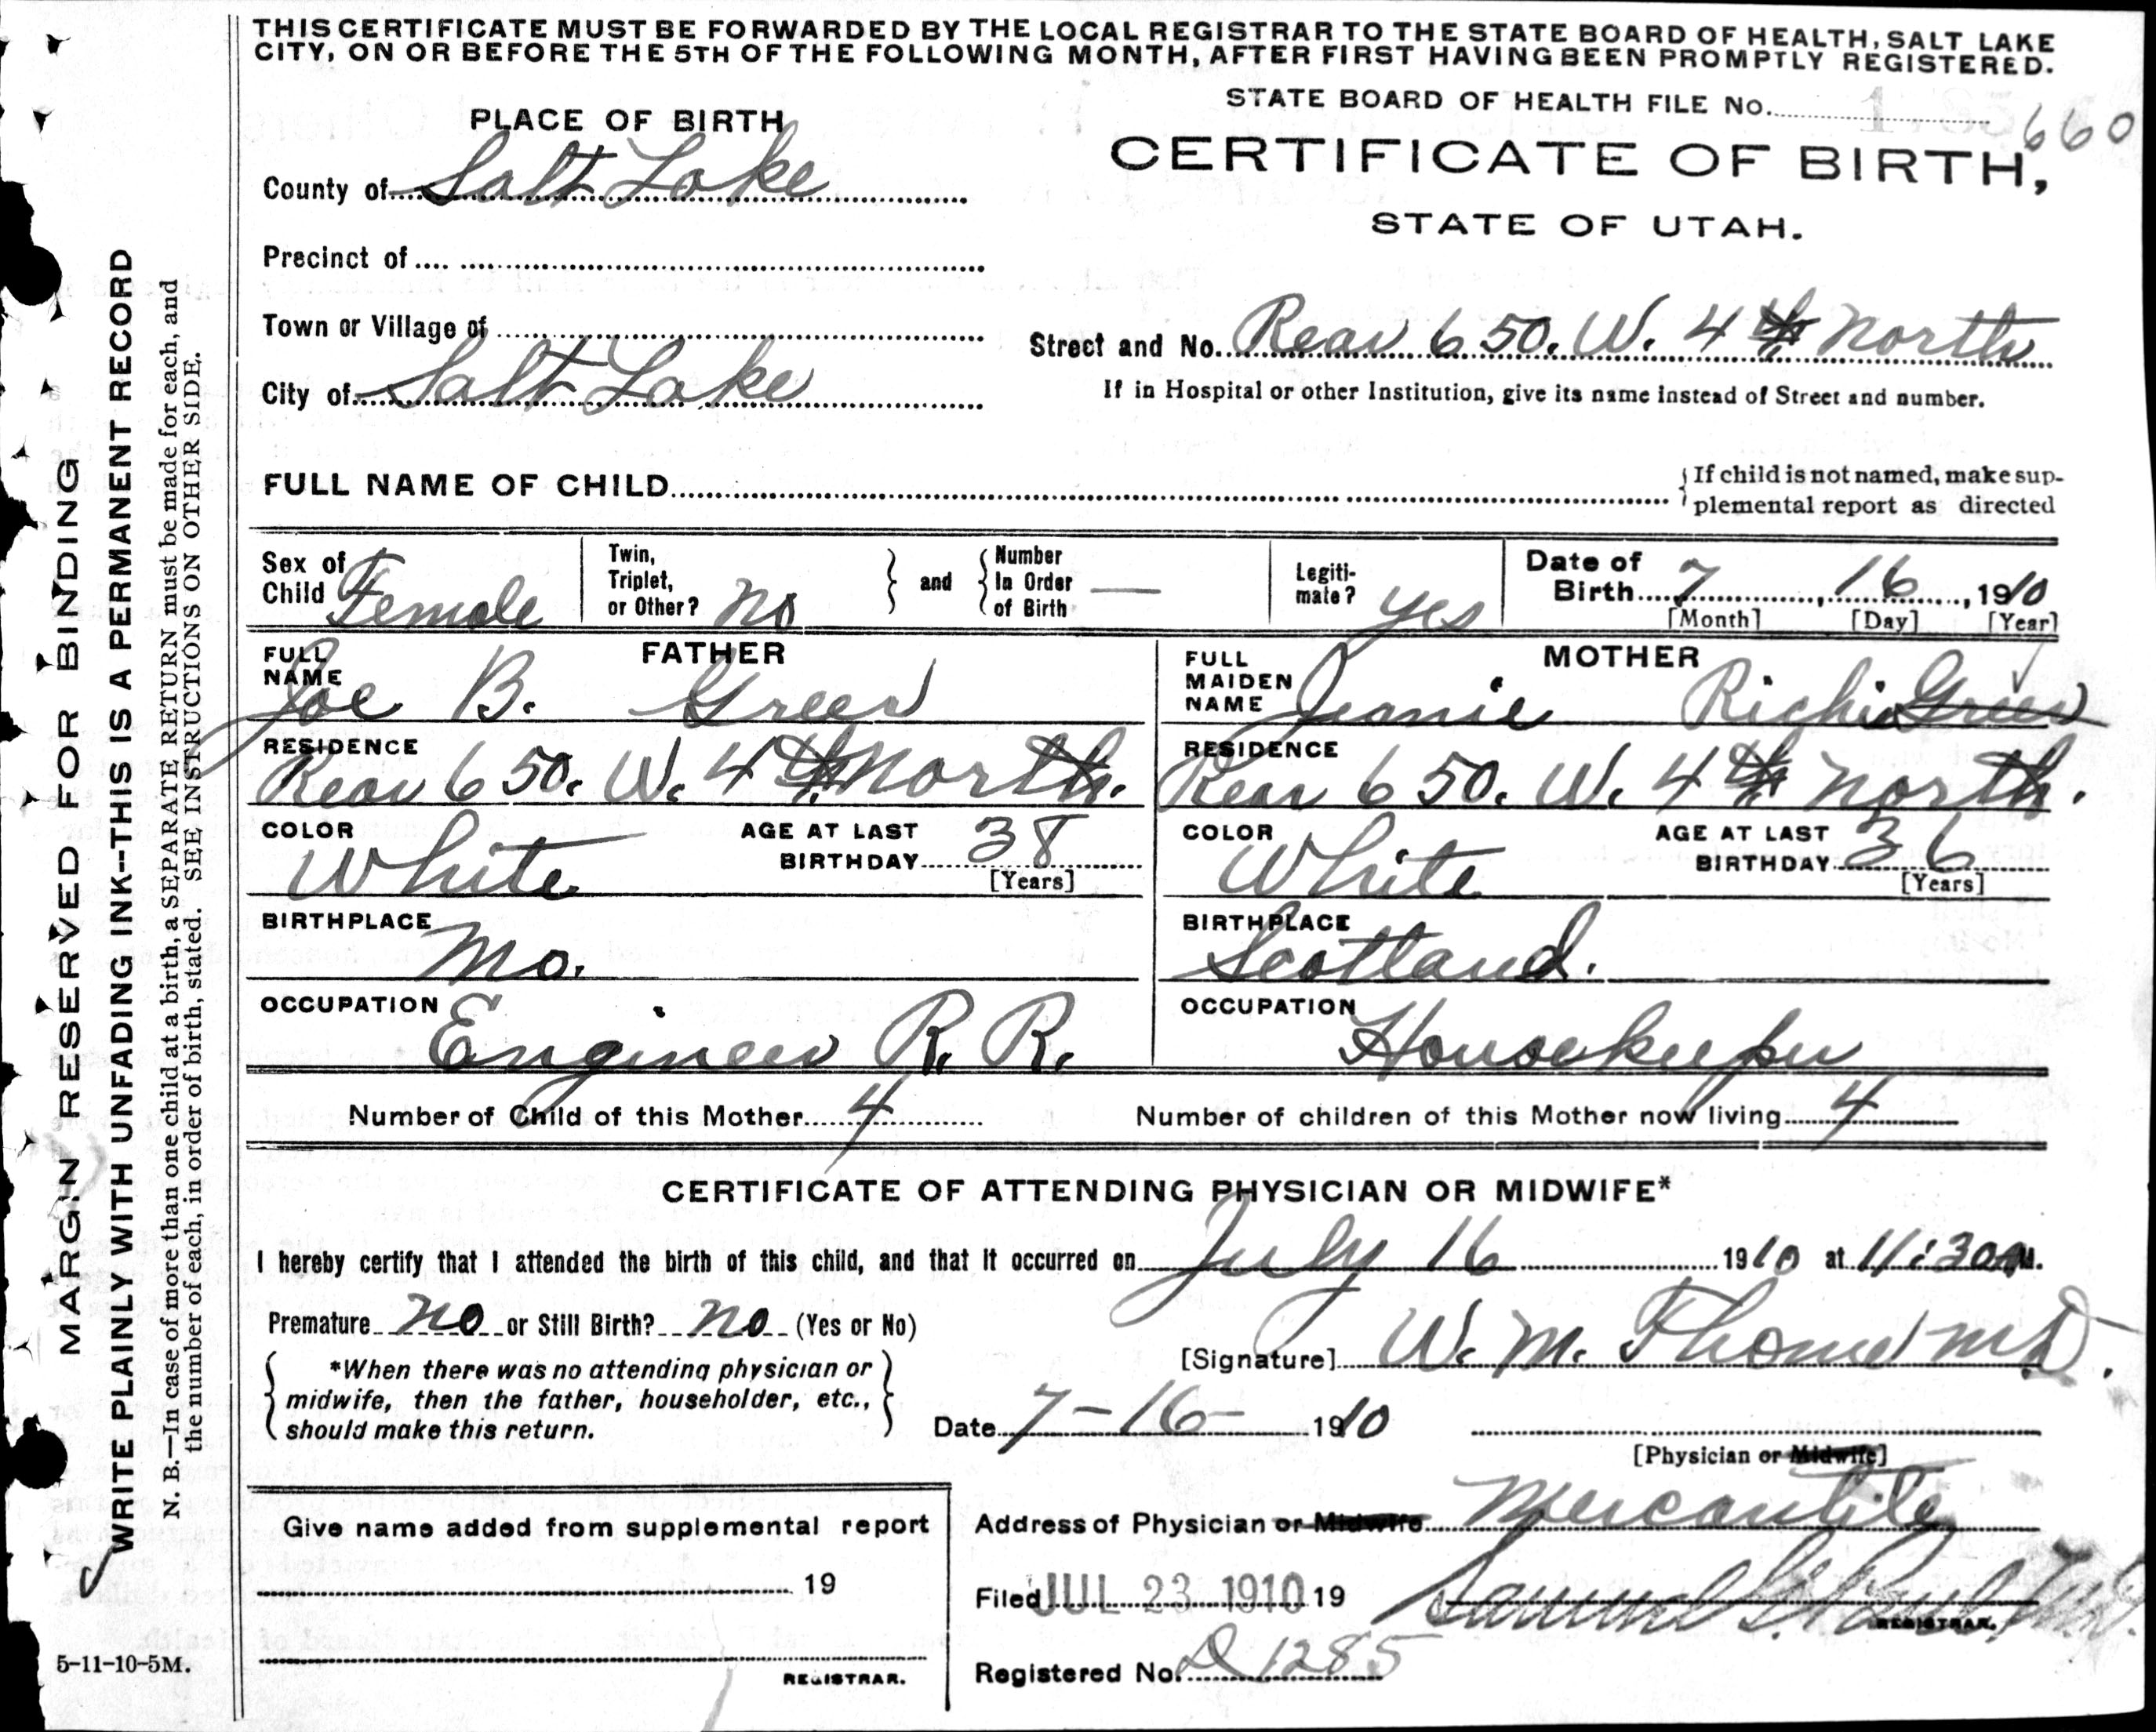 THIS CERTIFICATE MUST BE FORWARDED BY THE LOCAL REGISTRAR TO THE STATE BOARD OF HEALTH, SALT LAKE
CITY, ON OR BEFORE THE 5TH OF THE FOLLOWING MONTH, AFTER FIRST HAVING BEEN PROMPTLY REGISTERED.
STATE BOARD OF HEALTH FILE No. 660
PLACE OF BIRTH
CERTIFICATE OF BIRTH,
STATE OF UTAH.
County of Salt Lake
Precinct of
Town or Village of
Street and No. Rear 650. W. 4th North
City of Salt Lake
If in Hospital or other Institution, give its name instead of Street and number.
FULL NAME OF CHILD
If child is not named, make sup-
plemental report as directed
Sex of Child Female
Twin, Triplet, or Other? no
and
Number In Order of Birth —
Legiti-mate? yes
Date of Birth 7, 16, 1910
[Month] [Day] [Year]
FATHER
FULL NAME Joe B. Green
RESIDENCE
Rear 650. W. 4th North.
COLOR White
AGE AT LAST BIRTHDAY 38
[Years]
BIRTHPLACE
Mo.
OCCUPATION
Engineer R. R.
MOTHER
FULL MAIDEN NAME Jennie Richie Green
RESIDENCE
Rear 650. W. 4th North.
COLOR White
AGE AT LAST BIRTHDAY 36
[Years]
BIRTHPLACE
Scotland.
OCCUPATION
Housekeeper
Number of Child of this Mother 4
Number of children of this Mother now living 4
CERTIFICATE OF ATTENDING PHYSICIAN OR MIDWIFE*
I hereby certify that I attended the birth of this child, and that it occurred on July 16 1910 at 11:30 A M.
Premature no or Still Birth? no (Yes or No)
*When there was no attending physician or
midwife, then the father, householder, etc.,
should make this return.
[Signature] W. M. M.D.
Date 7-16- 1910
[Physician or Midwife]
Address of Physician or Midwife Mercantile
Give name added from supplemental report
19
REGISTRAR.
Filed JUL 23 1910 19 Samuel G. Paul, M.D.
REGISTRAR.
Registered No. 1285
5-11-10-5M.
MARGIN RESERVED FOR BINDING
WRITE PLAINLY WITH UNFADING INK--THIS IS A PERMANENT RECORD
N. B.—In case of more than one child at a birth, a SEPARATE RETURN must be made for each, and
the number of each, in order of birth, stated. SEE INSTRUCTIONS ON OTHER SIDE.